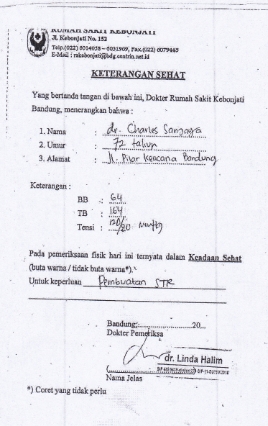 RUMAH SAKIT KEBONJATI
Jl. Kebonjati No. 152
Telp.(022) 6014058 – 6031969, Fax.(022) 6079665
E-Mail : rskebonjati@bdg.centrin.net.id
KETERANGAN SEHAT
Yang bertanda tangan di bawah ini, Dokter Rumah Sakit Kebonjati
Bandung, menerangkan bahwa :
1. Nama : dr. Charles
2. Umur : 72 tahun
3. Alamat : Jl. Pilar Kencana Bandung
Keterangan :
BB : 64
TB : 164
Tensi : 120/80
Pada pemeriksaan fisik hari ini ternyata dalam Keadaan Sehat
(buta warna / tidak buta warna*).
Untuk keperluan Pembuatan STR
Bandung, 20
Dokter Pemeriksa
dr. Linda Halim
Nama Jelas
*) Coret yang tidak perlu